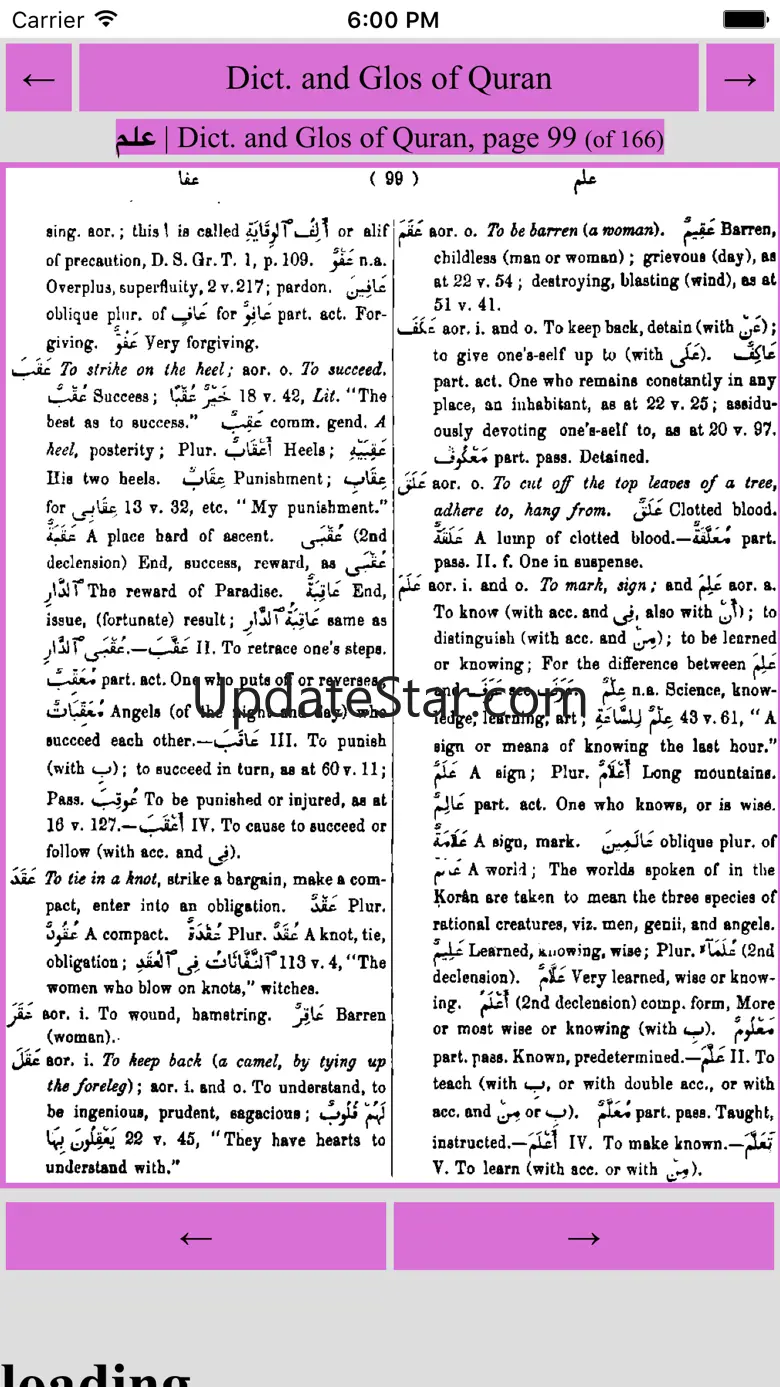 Carrier 6:00 PM
← Dict. and Glos of Quran →
علم | Dict. and Glos of Quran, page 99 (of 166)
عفا ( 99 ) علم
sing. aor.; this ا is called أَلِفُ ٱلْوِقَايَةِ or alif
of precaution, D. S. Gr. T. 1, p. 109. عَفْوٌ n.a.
Overplus, superfluity, 2 v. 217; pardon. عَافِينَ
oblique plur. of عَافٍ for عَافِوٌ part. act. For-
giving. عَفُوٌّ Very forgiving.
عَقَبَ To strike on the heel; aor. o. To succeed.
عُقْبٌ Success; خَيْرٌ عُقْبًا 18 v. 42, Lit. "The
best as to success." عَقِبٌ comm. gend. A
heel, posterity; Plur. أَعْقَابٌ Heels; عَقِبَيْهِ
His two heels. عِقَابٌ Punishment; عِقَابِ
for عِقَابِي 13 v. 32, etc. "My punishment."
عَقَبَةٌ A place hard of ascent. عُقْبَى (2nd
declension) End, success, reward, as عُقْبَى
ٱلدَّارِ The reward of Paradise. عَاقِبَةٌ End,
issue, (fortunate) result; عَاقِبَةُ ٱلدَّارِ same as
عُقْبَى ٱلدَّارِ.—عَقَّبَ II. To retrace one's steps.
مُعَقِّبٌ part. act. One who puts off or reverses.
مُعَقِّبَاتٌ Angels (of the night and day) who
succeed each other.—عَاقَبَ III. To punish
(with بِ); to succeed in turn, as at 60 v. 11;
Pass. عُوقِبَ To be punished or injured, as at
16 v. 127.—أَعْقَبَ IV. To cause to succeed or
follow (with acc. and فِي).
عَقَدَ To tie in a knot, strike a bargain, make a com-
pact, enter into an obligation. عَقْدٌ Plur.
عُقُودٌ A compact. عُقْدَةٌ Plur. عُقَدٌ A knot, tie,
obligation; ٱلنَّفَّاثَاتُ فِي ٱلْعُقَدِ 113 v. 4, "The
women who blow on knots," witches.
عَقَرَ aor. i. To wound, hamstring. عَاقِرٌ Barren
(woman).
عَقَلَ aor. i. To keep back (a camel, by tying up
the foreleg); aor. i. and o. To understand, to
be ingenious, prudent, sagacious; لَهُمْ قُلُوبٌ
يَعْقِلُونَ بِهَا 22 v. 45, "They have hearts to
understand with."
عَقُمَ aor. o. To be barren (a woman). عَقِيمٌ Barren,
childless (man or woman); grievous (day), as
at 22 v. 54; destroying, blasting (wind), as at
51 v. 41.
عَكَفَ aor. i. and o. To keep back, detain (with عَنْ);
to give one's-self up to (with عَلَى). عَاكِفٌ
part. act. One who remains constantly in any
place, an inhabitant, as at 22 v. 25; assidu-
ously devoting one's-self to, as at 20 v. 97.
مَعْكُوفٌ part. pass. Detained.
عَلَقَ aor. o. To cut off the top leaves of a tree,
adhere to, hang from. عَلَقٌ Clotted blood.
عَلَقَةٌ A lump of clotted blood.—مُعَلَّقَةٌ part.
pass. II. f. One in suspense.
عَلَمَ aor. i. and o. To mark, sign; and عَلِمَ aor. a.
To know (with acc. and فِي, also with أَنْ); to
distinguish (with acc. and مِنْ); to be learned
or knowing; For the difference between عَلِمَ
and عَرَفَ see عَرَفَ. عِلْمٌ n.a. Science, know-
ledge, learning, art; عِلْمٌ لِلسَّاعَةِ 43 v. 61, "A
sign or means of knowing the last hour."
عَلَمٌ A sign; Plur. أَعْلَامٌ Long mountains.
عَالِمٌ part. act. One who knows, or is wise.
عَلَامَةٌ A sign, mark. عَالَمِينَ oblique plur. of
عَالَمٌ A world; The worlds spoken of in the
Korân are taken to mean the three species of
rational creatures, viz. men, genii, and angels.
عَلِيمٌ Learned, knowing, wise; Plur. عُلَمَآءُ (2nd
declension). عَلَّامٌ Very learned, wise or know-
ing. أَعْلَمُ (2nd declension) comp. form, More
or most wise or knowing (with بِ). مَعْلُومٌ
part. pass. Known, predetermined.—عَلَّمَ II. To
teach (with بِ, or with double acc., or with
acc. and مِنْ or بِ). مُعَلَّمٌ part. pass. Taught,
instructed.—أَعْلَمَ IV. To make known.—تَعَلَّمَ
V. To learn (with acc. or with مِنْ).
UpdateStar.com
← →
loading